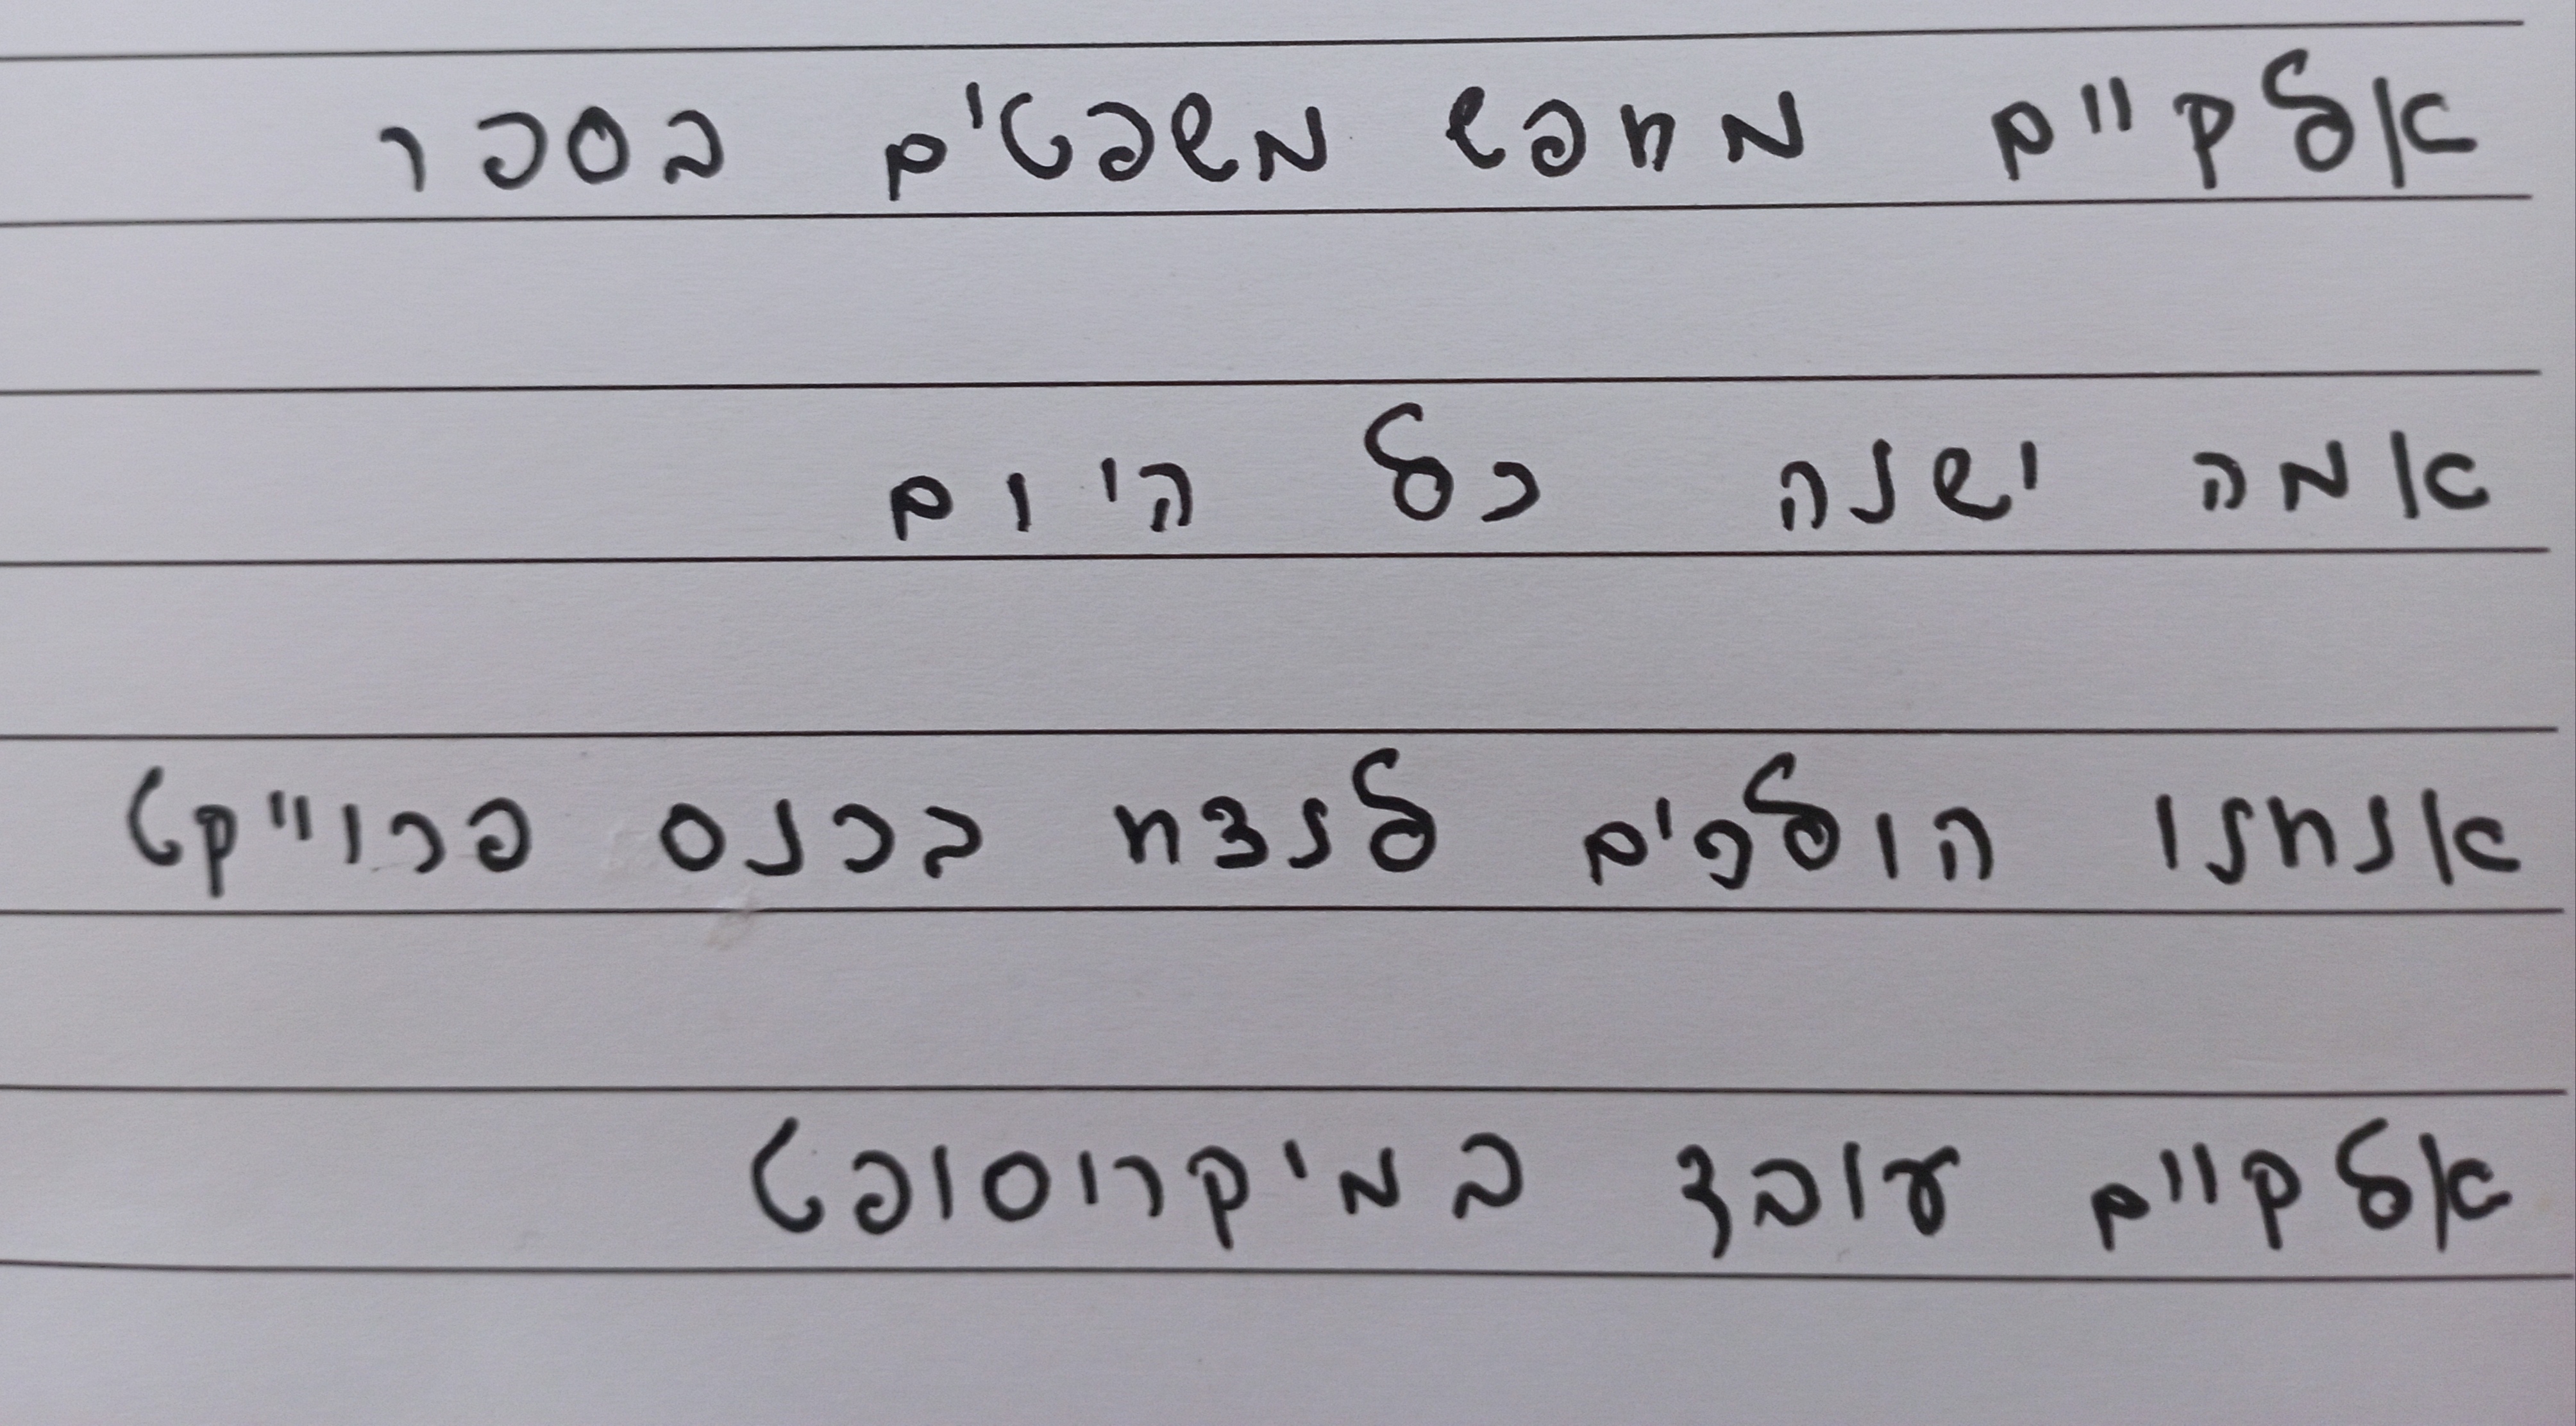 אלקיים מחפש משפטים בספר
אמה ישנה כל היום
אנחנו הולכים לנצח בכנס פרוייקט
אלקיים עובד במיקרוסופט